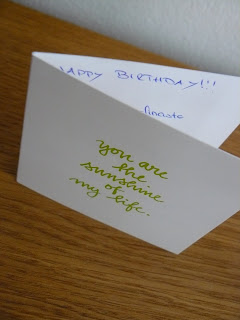 HAPPY BIRTHDAY!!!
you are
the
sunshine
of
my life.